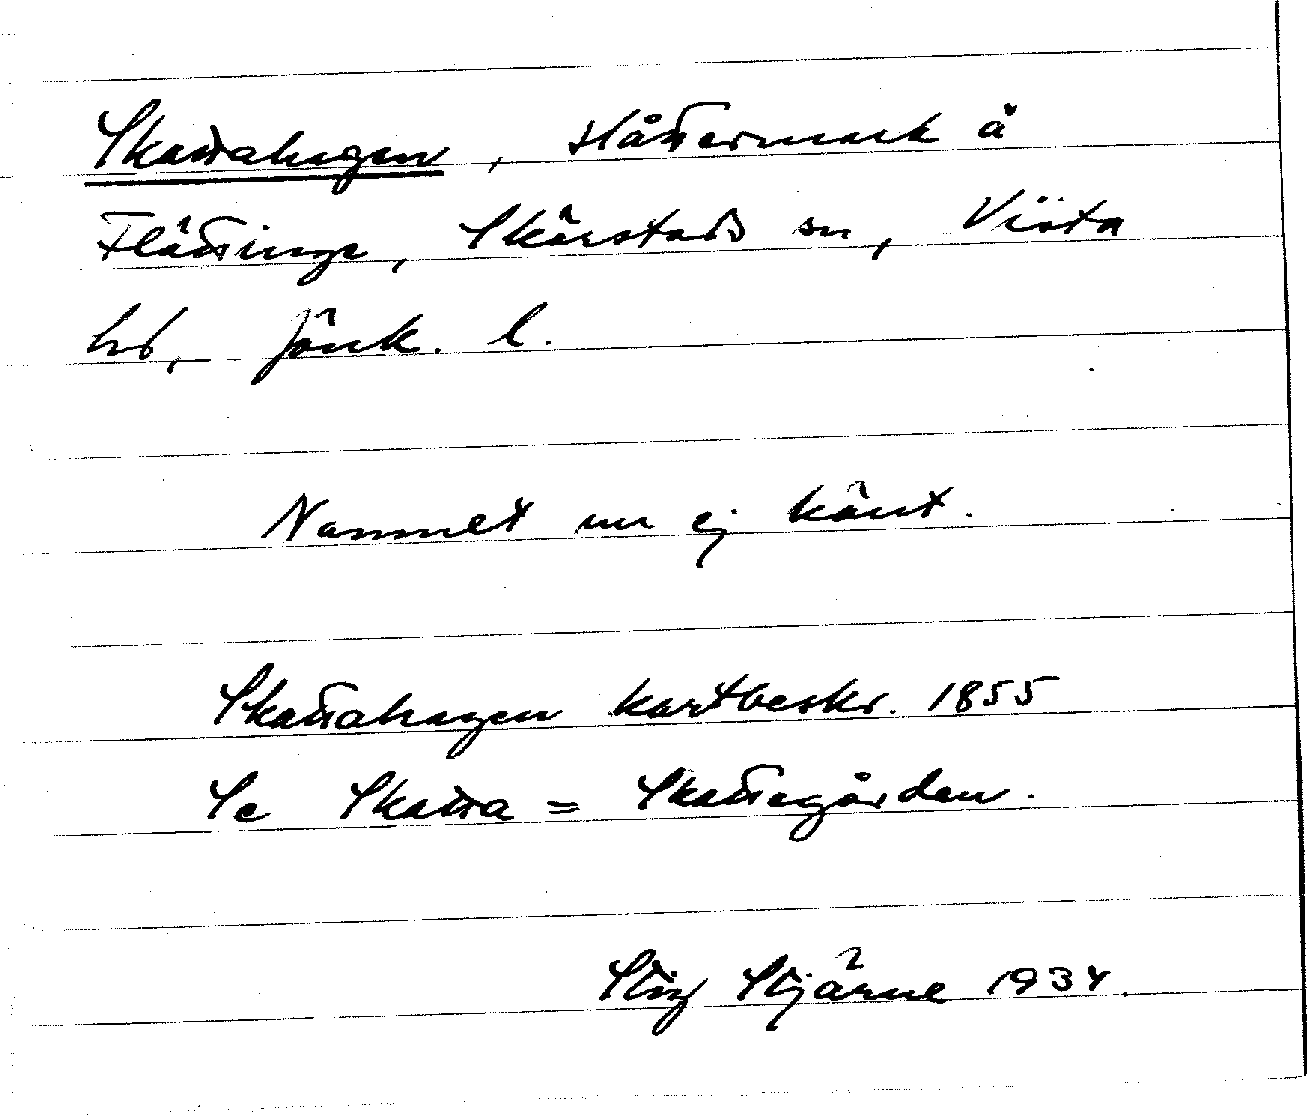 Skattahagen, slåttermark å
Flättinge, Skärstads sn, Vista
hd, Jönk. l.
Namnet nu ej känt.
Skattahagen kartbeskr. 1855
Se Skatta = Skattegården.
Stig Stjärne 1934.